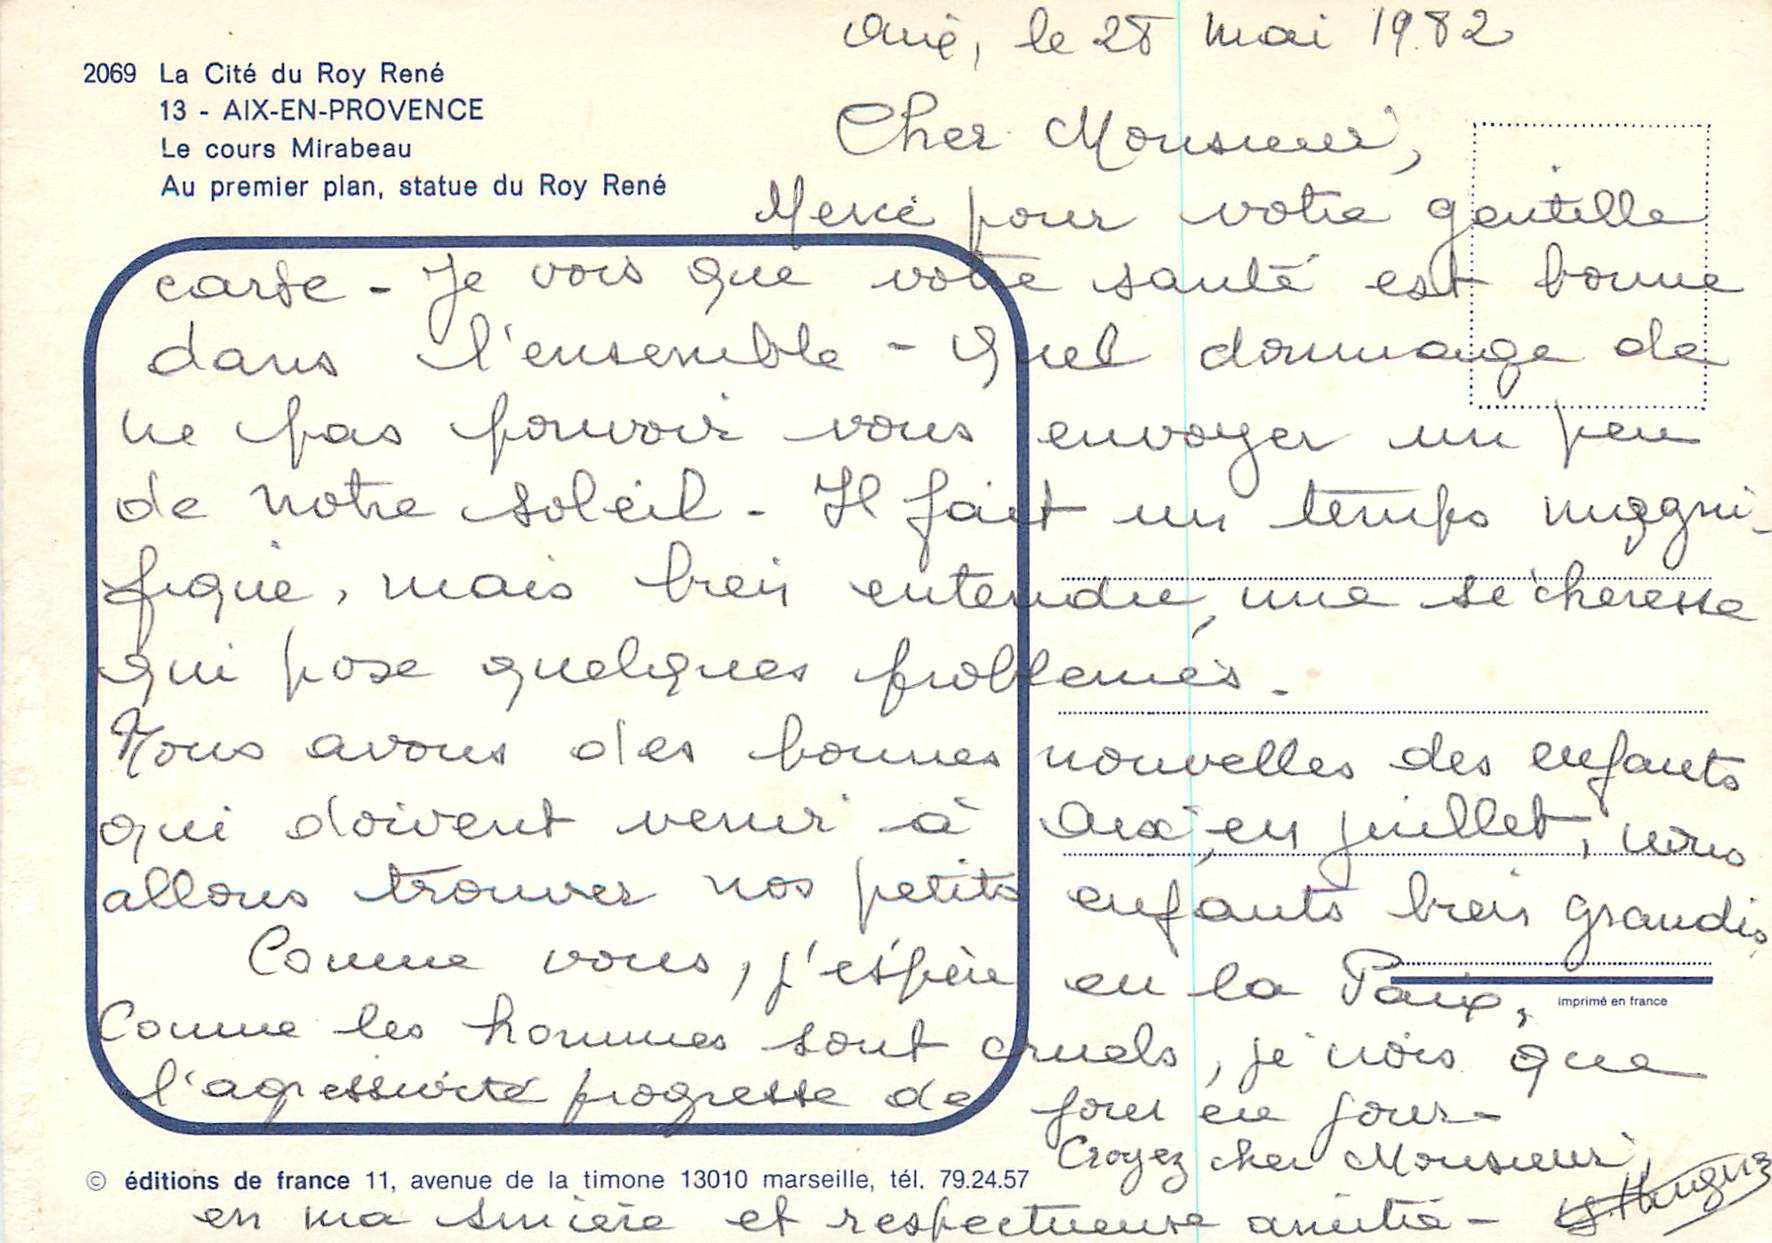 Aix, le 28 mai 1982
2069 La Cité du Roy René
13 - AIX-EN-PROVENCE
Le cours Mirabeau
Au premier plan, statue du Roy René
Cher Monsieur,
Merci pour votre gentille
carte - Je vois que votre santé est bonne
dans l'ensemble - Quel dommage de
ne pas pouvoir vous envoyer un peu
de notre soleil - Il fait un temps magni-
fique, mais bien entendu, une sécheresse
qui pose quelques problèmes -
Nous avons des bonnes nouvelles des enfants
qui doivent venir à Aix, en juillet, nous
allons trouver nos petits enfants bien grandis,
Comme vous, j'espère en la Paix,
imprimé en france
Comme les hommes sont cruels, je vois que
l'agressivité progresse de jour en jour -
Croyez cher Monsieur,
© éditions de france 11, avenue de la timone 13010 marseille, tél. 79.24.57
en ma sincère et respectueuse amitié -